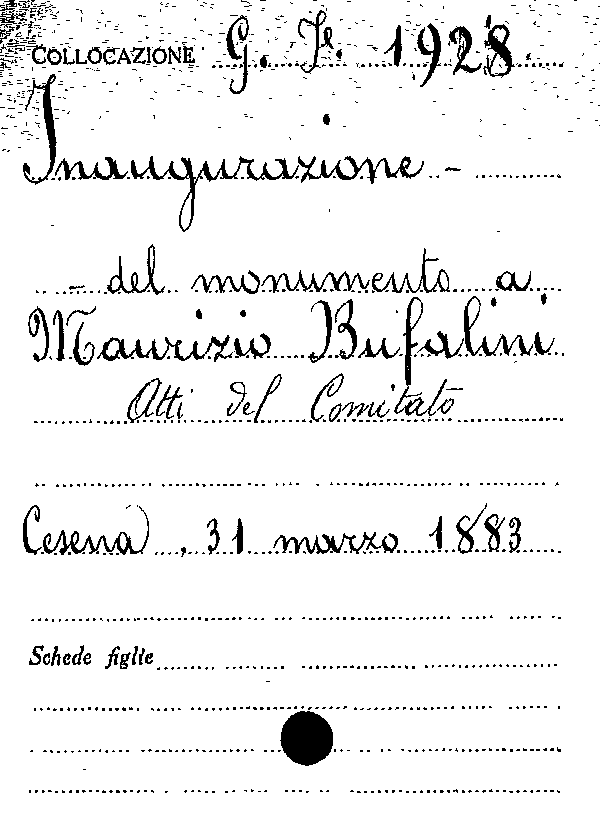 COLLOCAZIONE G. Fe. 1928.
Inaugurazione -
- del monumento a
Maurizio Bufalini
Atti del Comitato
Cesena), 31 marzo 1883
Schede figlie